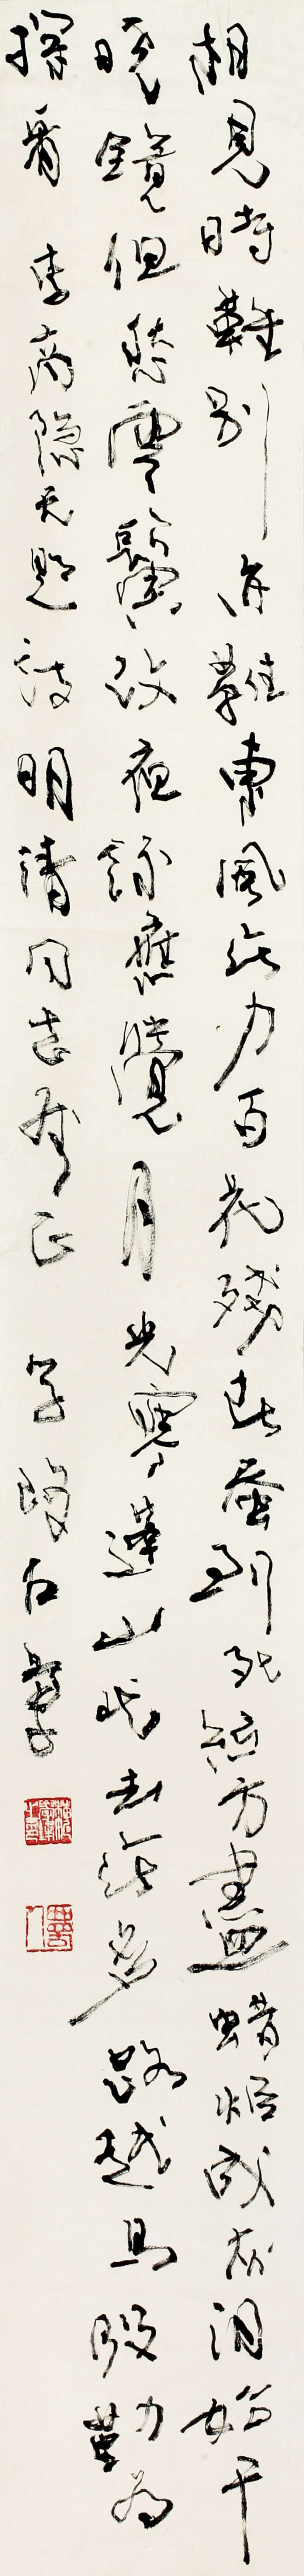 相見時難別亦難東風無力百花殘春蚕到死絲方盡蜡炬成灰泪始干
曉鏡但愁雲鬢改夜吟應覺月光寒蓬山此去無多路越鳥殷勤为
探看 李商隐无題詩 明濤同志正